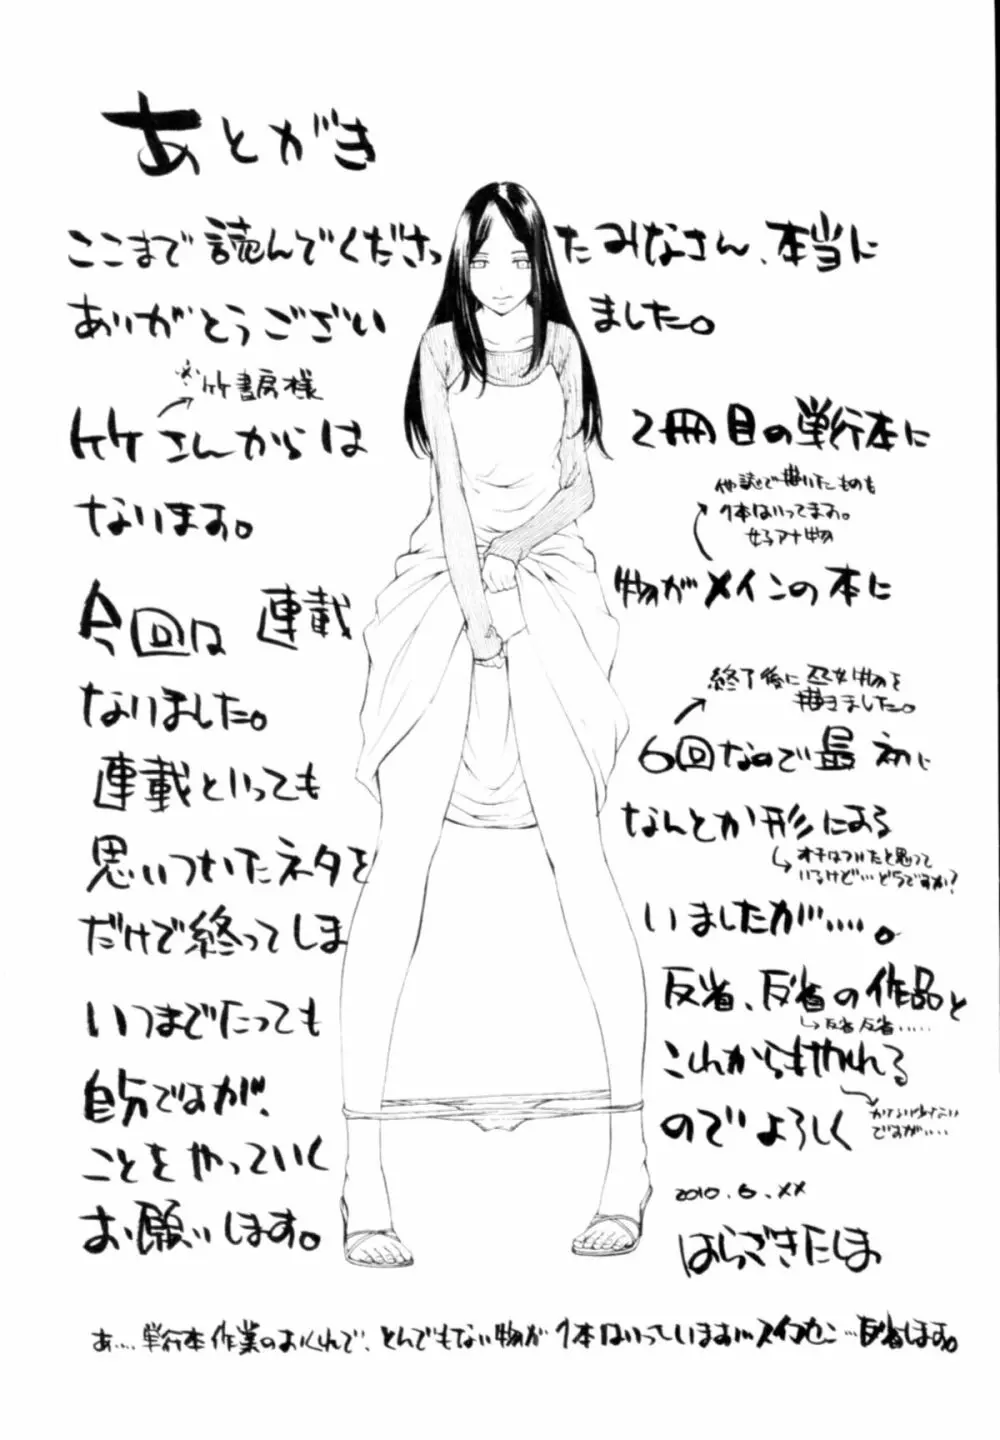 あとがき
ここまで読んでくださったみなさん、本当に
ありがとうございました。
※竹書房様
竹さんからは2冊目の単行本に
なります。
他誌で描いたものも
1本はいってます。
女子アナ物
今回は連載物がメインの本に
終了後に巫女物を
描きました。
なりました。
連載といっても6回なので最初に
思いついたネタをなんとか形にある
オチはついたと思って
いるけど…どうですか?
だけで終ってしまいましたが……。
いつまでたっても反省、反省の作品と
反省反省……
自分ですが、これからもやれる
ことをやっていくのでよろしく
ですが……
お願いします。
2010.6.××
はらざきたくま
あ…、単行本作業のおくれで、とんでもない物が1本はいっています…スイマセン…反省します。